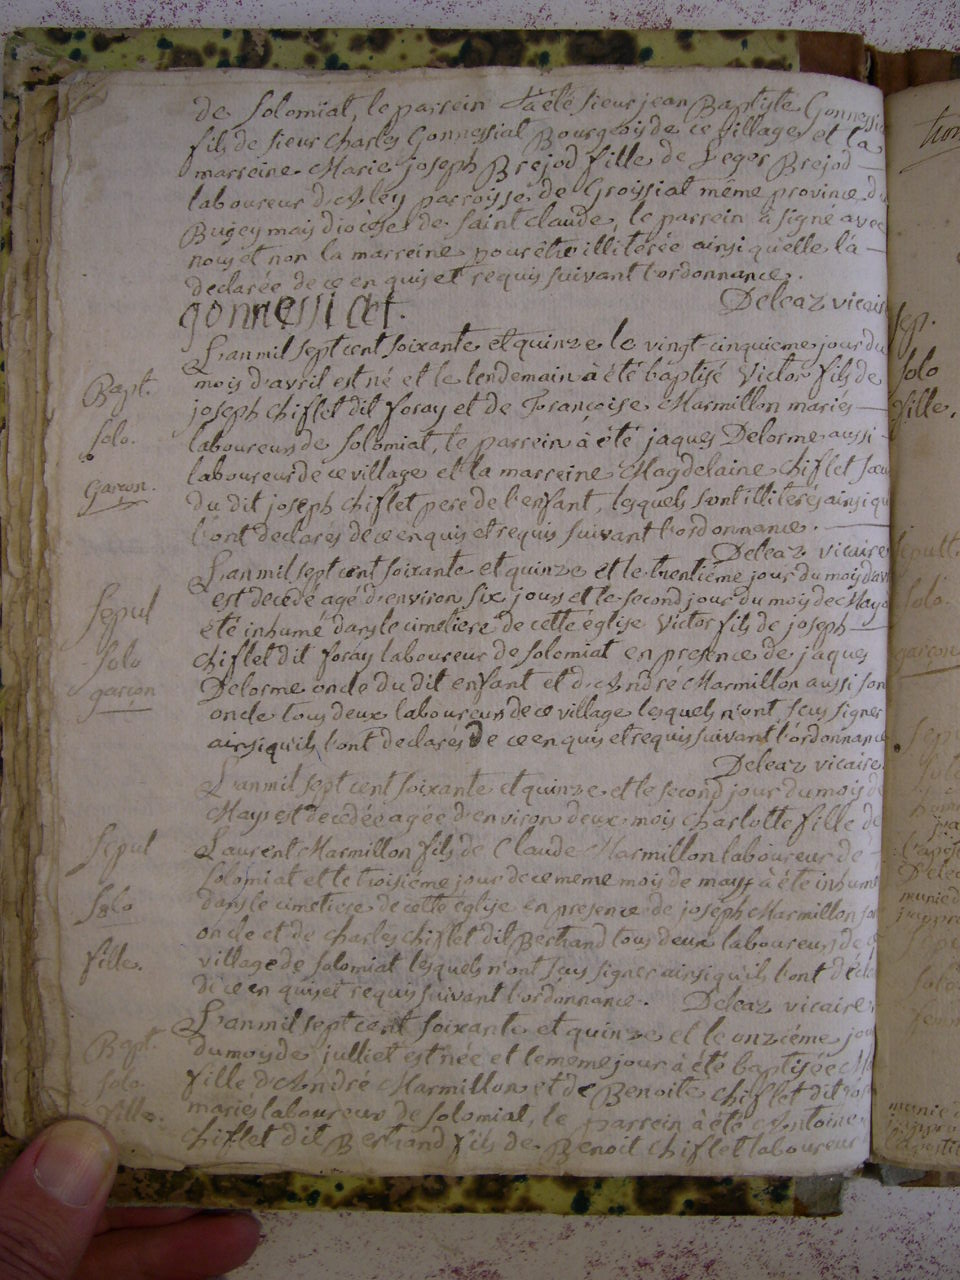 de Solomiat, le parrein à été sieur jean Baptiste Gonnessia
fils de sieur Charles Gonnessiat Bourgeois de ce village, et la
marreine Marie joseph Brejod fille de Leger Brejod
laboureur d'Aley parroisse de Groissiat même province du
Bugey mais diocèse de Saint Claude, le parrein à signé avec
nous et non la marreine pour être illitérée ainsi qu'elle l'à
declarée de ce enquis et requis suivant l'ordonnance.
gonnessiat.
Deleaz vicaire
Bapt.
Solo.
Garçon.
L'an mil sept cent soixante et quinze le vingt-cinquieme jour du
mois d'avril est né et le lendemain à été baptisé Victor fils de
joseph Chiflet dit foray et de Françoise Marmillon mariés
laboureurs de Solomiat, le parrein à été jaques Delorme aussi
laboureur de ce village et la marreine Magdelaine Chiflet sœu
du dit joseph Chiflet pere de l'enfant, lesquels sont illiterés ainsi qu
l'ont declarés de ce enquis et requis suivant l'ordonnance.
Deleaz vicaire
Sepul
Solo
garçon
L'an mil sept cent soixante et quinze et le trentième jour du mois d'av
est decedé agé d'environ six jours et le second jour du mois de May a
été inhumé dans le cimetiere de cette église Victor fils de joseph
Chiflet dit foray laboureur de Solomiat en presence de jaques
Delorme oncle du dit enfant et d'André Marmillon aussi son
oncle tous deux laboureurs de ce village lesquels n'ont sçus signer
ainsi qu'ils l'ont declarés de ce enquis et requis suivant l'ordonnance
Deleaz vicaire.
Sepul
Solo
fille.
L'an mil sept cent soixante et quinze et le second jour du mois de
May est decedée agée d'environ deux mois Charlotte fille de
Laurent Marmillon fils de Claude Marmillon laboureur de
Solomiat et le troisiéme jour de ce meme mois de may à été inhumé
dans le cimetiere de cette eglise en presence de joseph Marmillon son
oncle et de Charles Chiflet dit Bertrand tous deux laboureurs de c
village de Solomiat lesquels n'ont sçus signer ainsi qu'ils l'ont décla
de ce enquis et requis suivant l'ordonnance. Deleaz vicaire
Bapt.
Solo.
fille.
L'an mil sept cent soixante et quinze et le onziéme jou
du moy de julliet est née et le meme jour à été baptisée Ma
fille d'André Marmillon et de Benoite Chiflet dit
mariés laboureurs de Solomiat, le parrein à été Antoine
Chiflet dit Bertrand fils de Benoit Chiflet laboureur
Sep.
Solo
fille.
Solo.
garçon